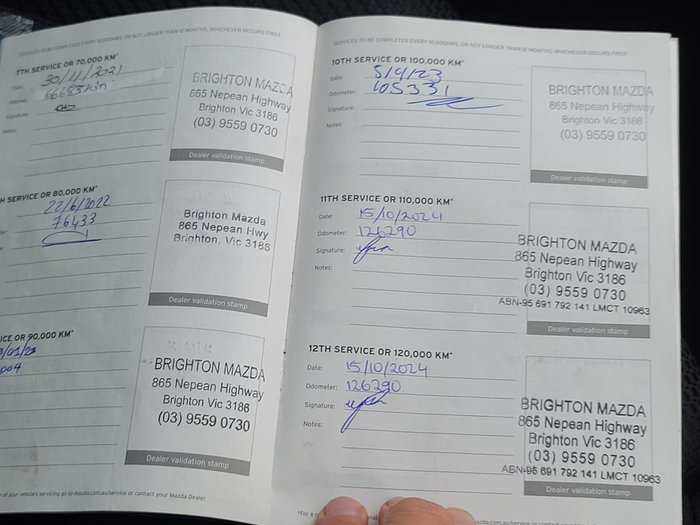 SERVICES TO BE COMPLETED EVERY 10,000KMS, OR NOT LONGER THAN 12 MONTHS, WHICHEVER OCCURS FIRST
7TH SERVICE OR 70,000 KM*
30/11/2021
Signature:
Notes:
BRIGHTON MAZDA
865 Nepean Highway
Brighton Vic 3186
(03) 9559 0730
Dealer validation stamp
H SERVICE OR 80,000 KM*
22/6/2022
76433
Brighton Mazda
865 Nepean Hwy
Brighton, Vic 3186
Dealer validation stamp
ICE OR 90,000 KM*
/01/23
004
BRIGHTON MAZDA
865 Nepean Highway
Brighton Vic 3186
(03) 9559 0730
Dealer validation stamp
n of your vehicle's servicing go to mazda.com.au/service or contact your Mazda Dealer
SERVICES TO BE COMPLETED EVERY 10,000KMS, OR NOT LONGER THAN 12 MONTHS, WHICHEVER OCCURS FIRST
10TH SERVICE OR 100,000 KM*
Date: 5/9/23
Odometer: 105331
Signature:
Notes:
BRIGHTON MAZDA
865 Nepean Highway
Brighton Vic 3186
(03) 9559 0730
Dealer validation stamp
11TH SERVICE OR 110,000 KM*
Date: 15/10/2024
Odometer: 126290
Signature:
Notes:
BRIGHTON MAZDA
865 Nepean Highway
Brighton Vic 3186
(03) 9559 0730
ABN-95 691 792 141 LMCT 10963
Dealer validation stamp
12TH SERVICE OR 120,000 KM*
Date: 15/10/2024
Odometer: 126290
Signature:
Notes:
BRIGHTON MAZDA
865 Nepean Highway
Brighton Vic 3186
(03) 9559 0730
ABN-95 691 792 141 LMCT 10963
Dealer validation stamp
*For a c